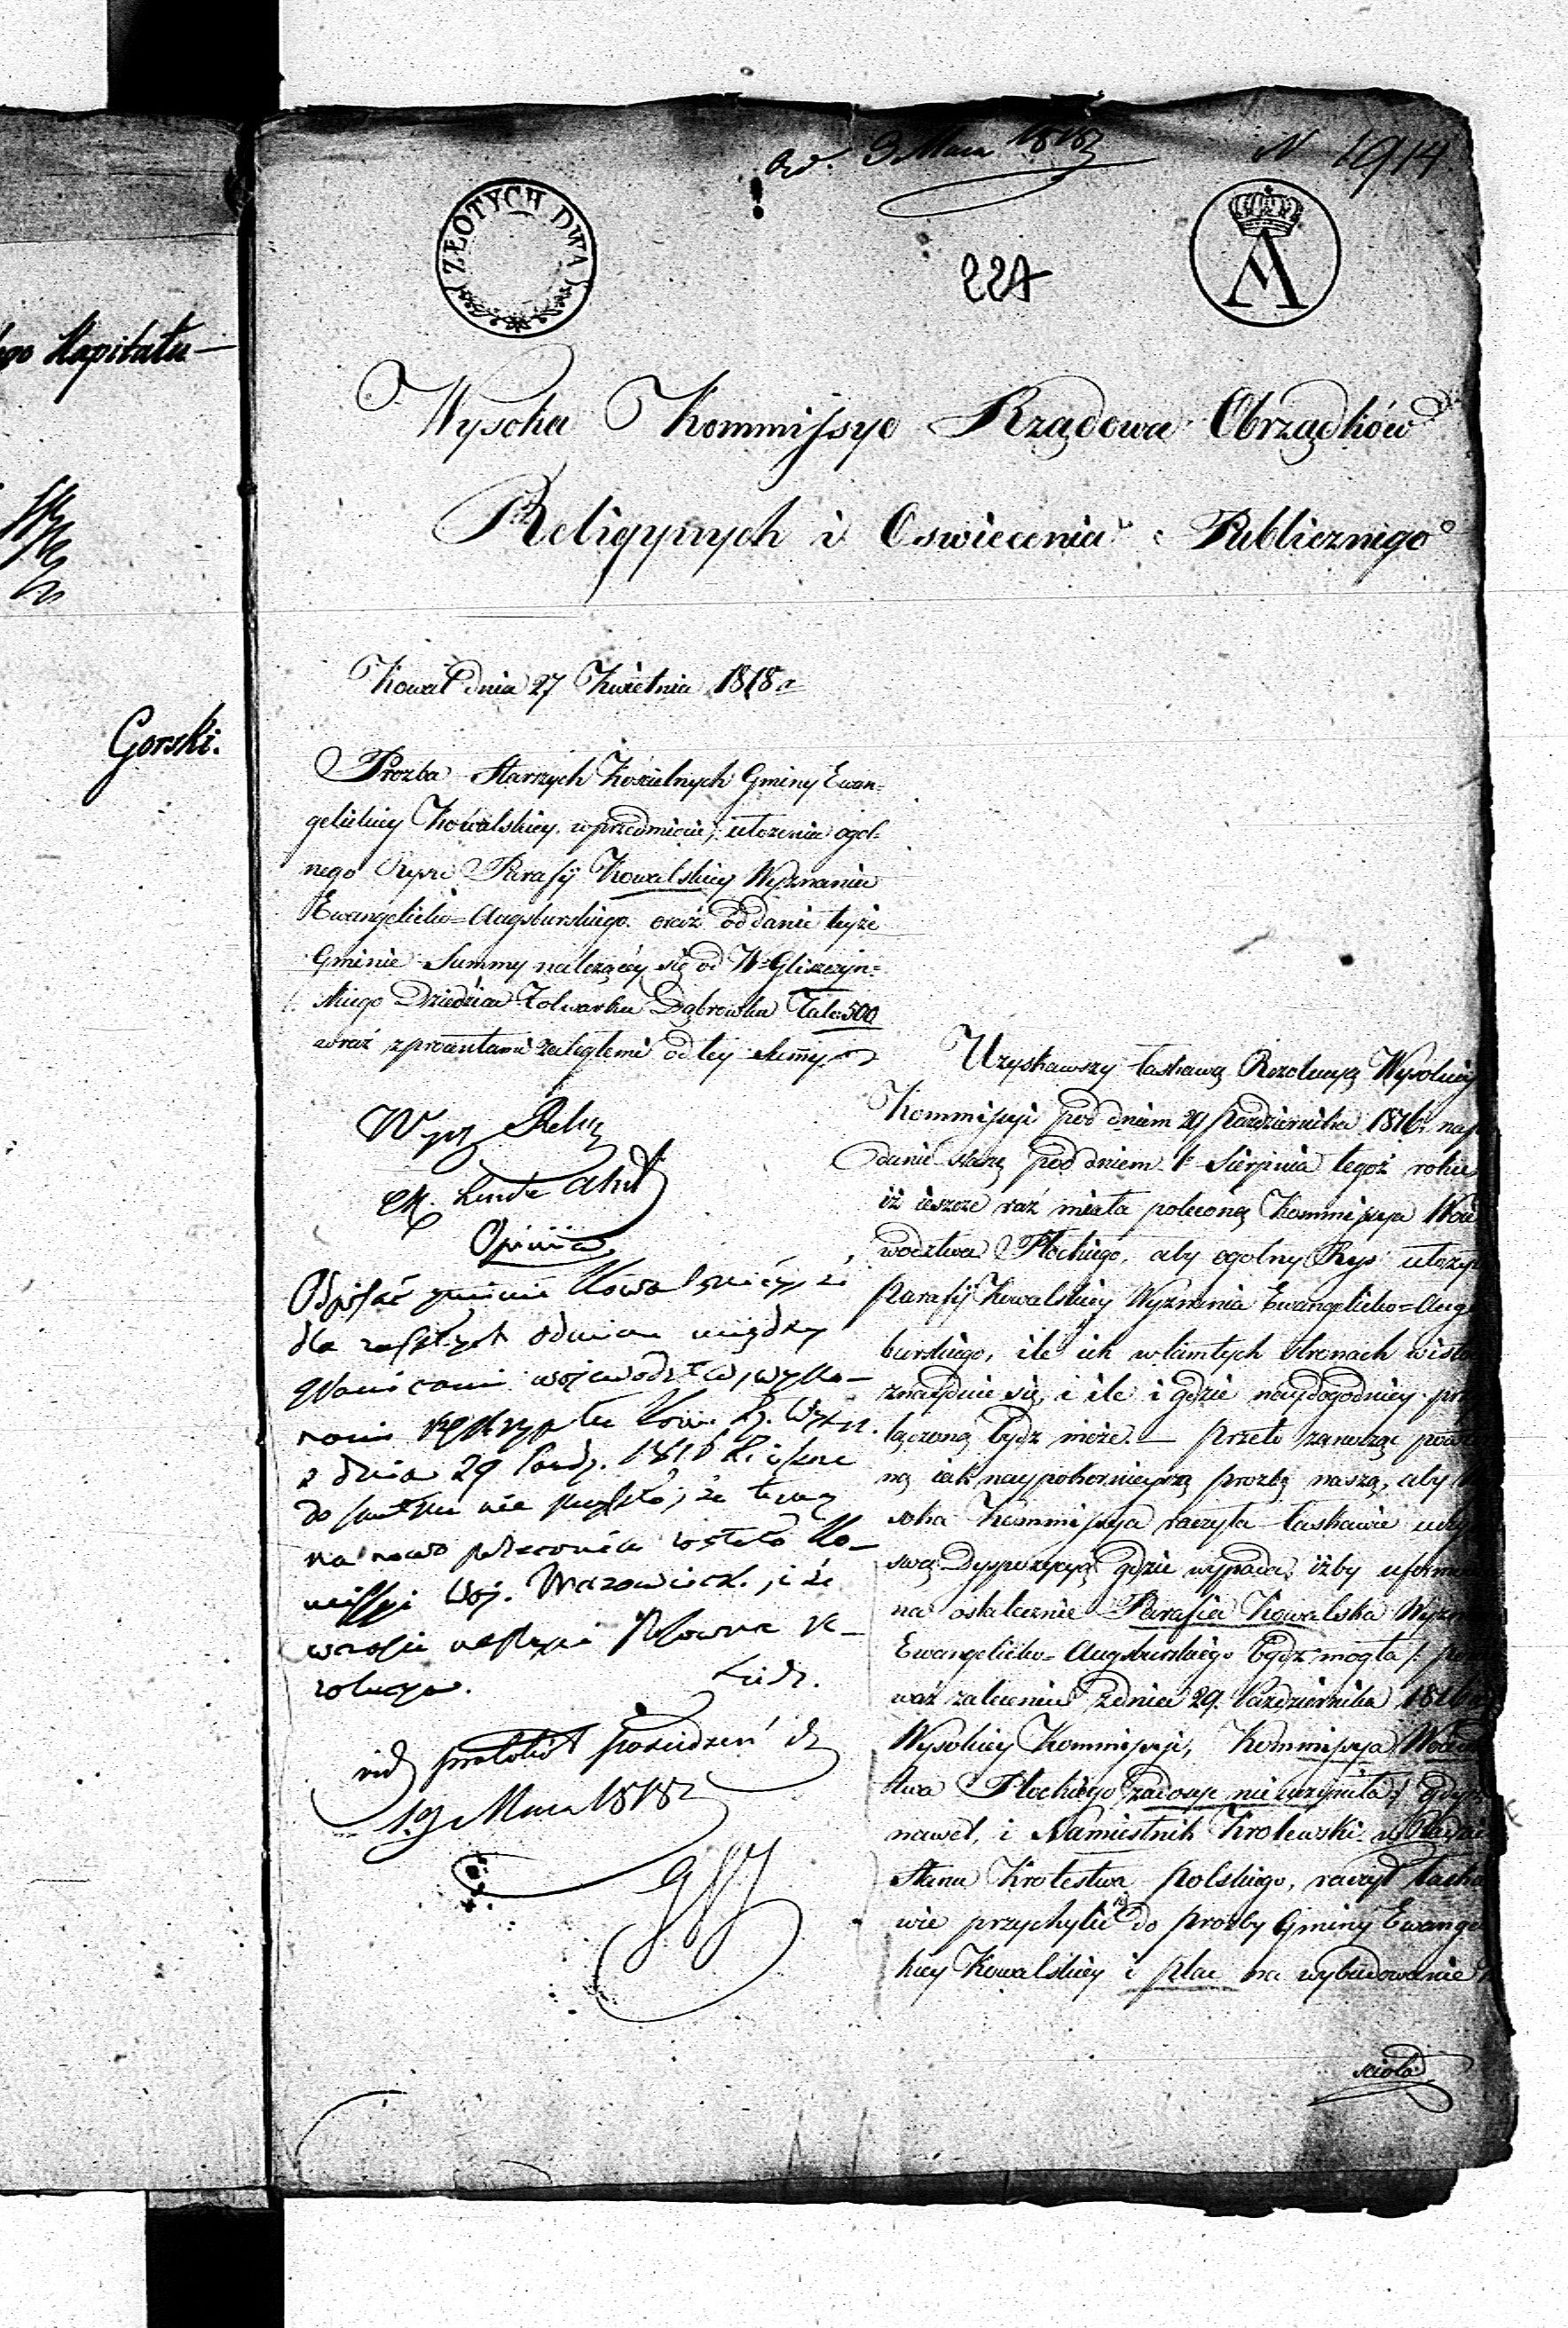 Kapitału
Gorski.
9 Maia 1818
N 1914
ZŁOTYCH DWA
A
227
Wysoka Kommissyo Rządowa Obrządków
Religyinych i Oswiecenia Publicznego
Kowal dnia 27 Kwietnia 1818 r
Prozba Starszych Koscielnych Gminy Ewan=
gelickiey Kowalskiey, w przedmiocie, ułozenia ogól=
nego Rysu Parafij Kowalskiey Wyznania
Ewangelicko=Augsburskiego. oraz oddanie teyże
Gminie Summy należącéy się od W. Gliszczyn=
skiego Dziedzica Folwarku Dąbrowka Tala: 500
wraz z procentami zaległemi od tey Summy
Opinia
Odpisać gminie Kowalskiéy, że
dla zaszłych odmian między
granicami województw, wyko=
nanie reskryptu Kom. Rz. Wyzn.
z dnia 29 Paźdz. 1816 R. ieszcze
do skutku nie przyszło; że teraz
na nowo polecenie zostało Ko=
missyi Woj. Mazowieck., i że
wczasie nastąpi stosowna re=
zolucya.
vid protokół posiedzeń d
19 Maia 1818
Uzyskawszy łaskawą Rezolucyą Wysokiey
Kommissyi pod dniem 29 Pazdziernika 1816 r. na po
danie nasze pod dniem 1 Sierpnia tegoż roku
iż ieszcze raz miała poleconą Kommissya Woie
wodztwa Płockiego, aby ogolny Rys ułozyć
Parafij Kowalskiey Wyznania Ewangelicko=Aug
burskiego, ile ich w tamtych stronach
znayduie się, i ile i gdzie naydogodniey
łączoną bydz może. — Przeto zanosząc
ną iak naypokornieyszą prozbę naszą, aby
soka Kommissya raczyła łaskawie
swą Dyspozycyą gdzie wypada, iżby
na ostatecznie Parafia Kowalska
Ewangelicko=Augsburskiego bydz mogła /:
waż zaleceniu z dnia 29. Pazdziernika 1816
Wysokiey Kommissyi, Kommissya
twa Płockiego zadosyć nie uczyniła :/ gdyż
nawet, i Namiestnik Krolewski w Radzie
Stanu Krolestwa Polskiego, raczył łaska
wie przychylić się do prozby Gminy Ewange
kiey Kowalskiey i plac na wybudowanie
scioła